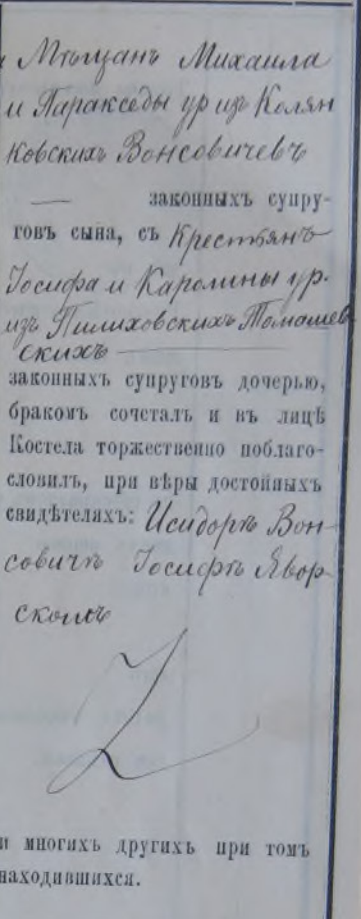 Мѣщанъ Михаила
и Параксeды ур изъ Колян
ковскихъ Вонсовичевъ
законныхъ супру-
говъ сына, съ Крестьянъ
Іосифа и Каролины ур.
изъ Пилиховскихъ Томашев
скихъ
законныхъ супруговъ дочерью,
бракомъ сочеталъ и въ лицѣ
Костела торжественно поблаго-
словилъ, при вѣры достойныхъ
свидѣтеляхъ: Исидорѣ Вон-
совичѣ Іосифѣ Явор-
скомъ
и многихъ другихъ при томъ
находившихся.